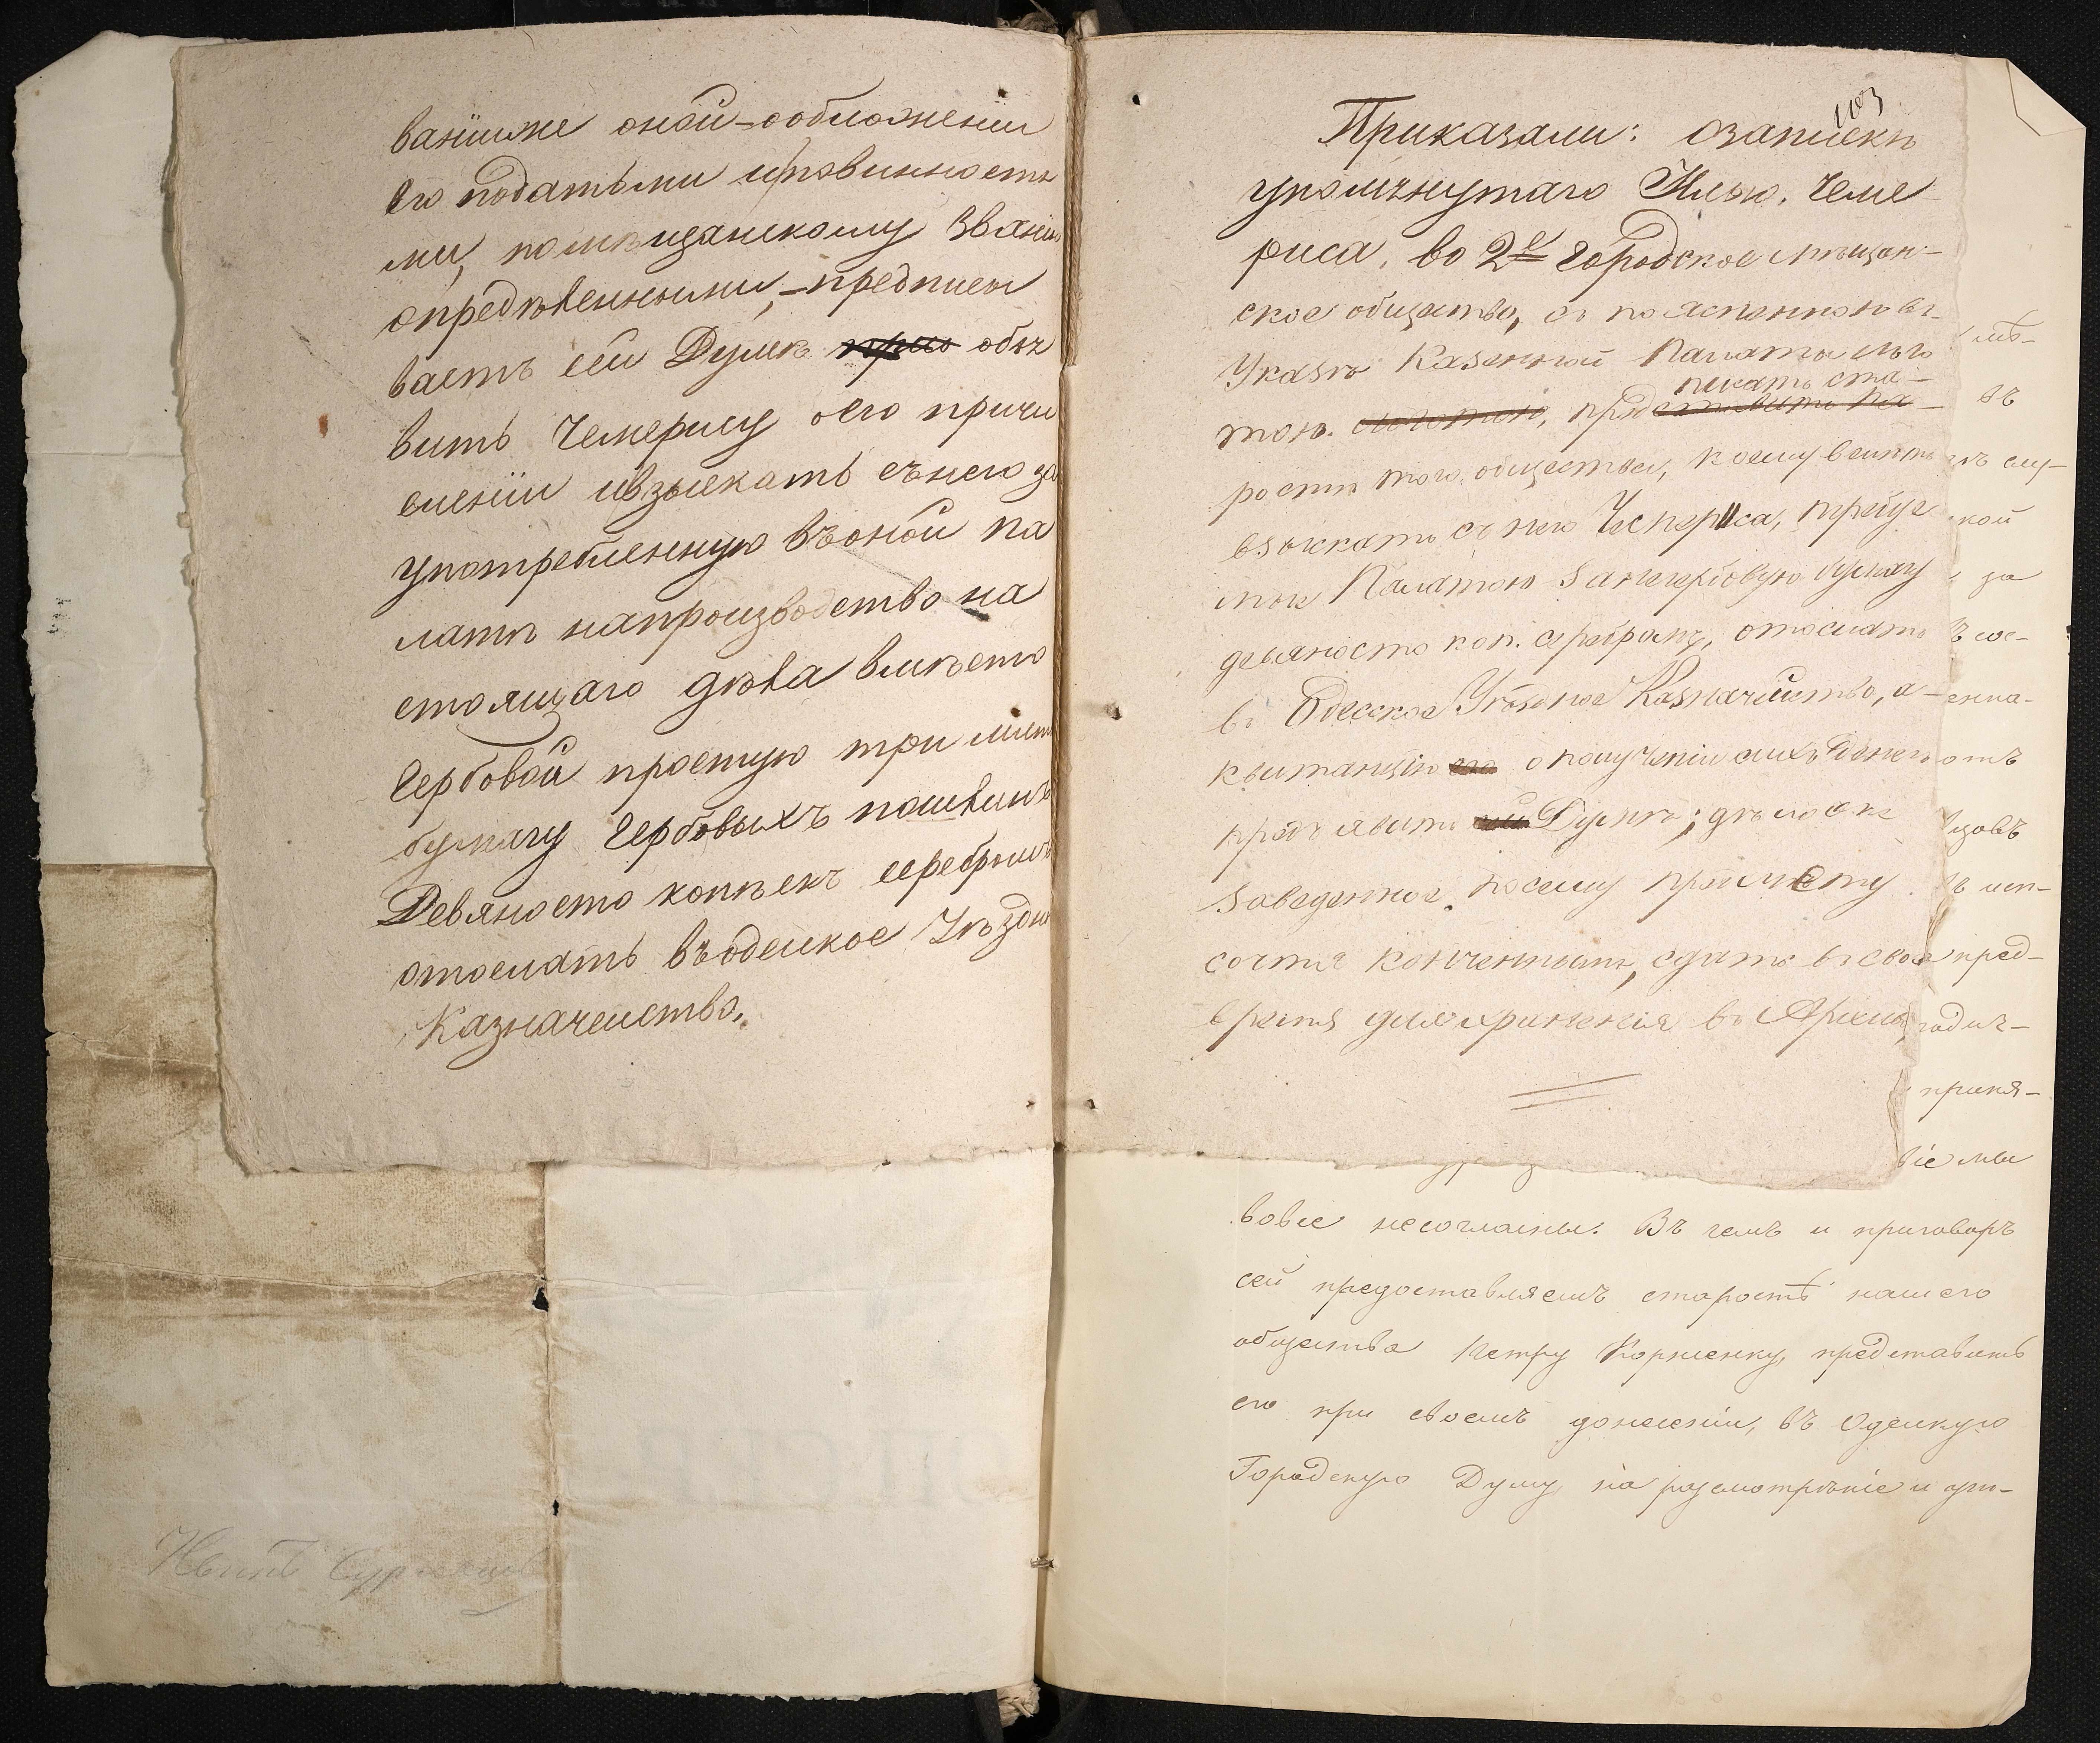 ваніиже оной-обложеніи
его податьми иповинностя
ми, помѣщанскому звани
опредѣленными,-предписы
ваетъ сей Думѣ объя
вить Чемерису оего причи
сленіи ивзыскать съ него за
употребленную въоной Па
латѣ напроизводство на
стоящаго дѣла вмѣсто
Гербовой простую три лист
бумагу Гербовыхъ пошлинъ
Девяносто копѣекъ серебромъ
отослать въодеское Уѣздн
Казначейство.
103
Приказали: озапискѣ
упомянутаго Илью Чеме-
риса, во 2е Городское мѣщан-
ское общество,
Указѣ Казенной Палаты
писать ста-
рости того общества, коему велить
взыскать съ него Чемериса,
Палатою загербовую бумагу
девяносто коп. серебромъ, отослать
въ Одесское Уѣздное Казначейство, а
квитанцію о полученіи сихъ денегъ
предъявить Думѣ; дѣло
заведенное посему предмету
сочтя конченнымъ, сдать въ свое
время для храненія въ Архивъ
въ
кой
за
отъ
пред-
приня-
віе мы
вовсе несогласны. Въ чемъ и приговоръ
сей предоставляемъ старостѣ нашего
общества Петру Корниенку, представить
его при своемъ донесеніи, въ Одесскую
Городскую Думу, на разсмотрѣніе и ут-